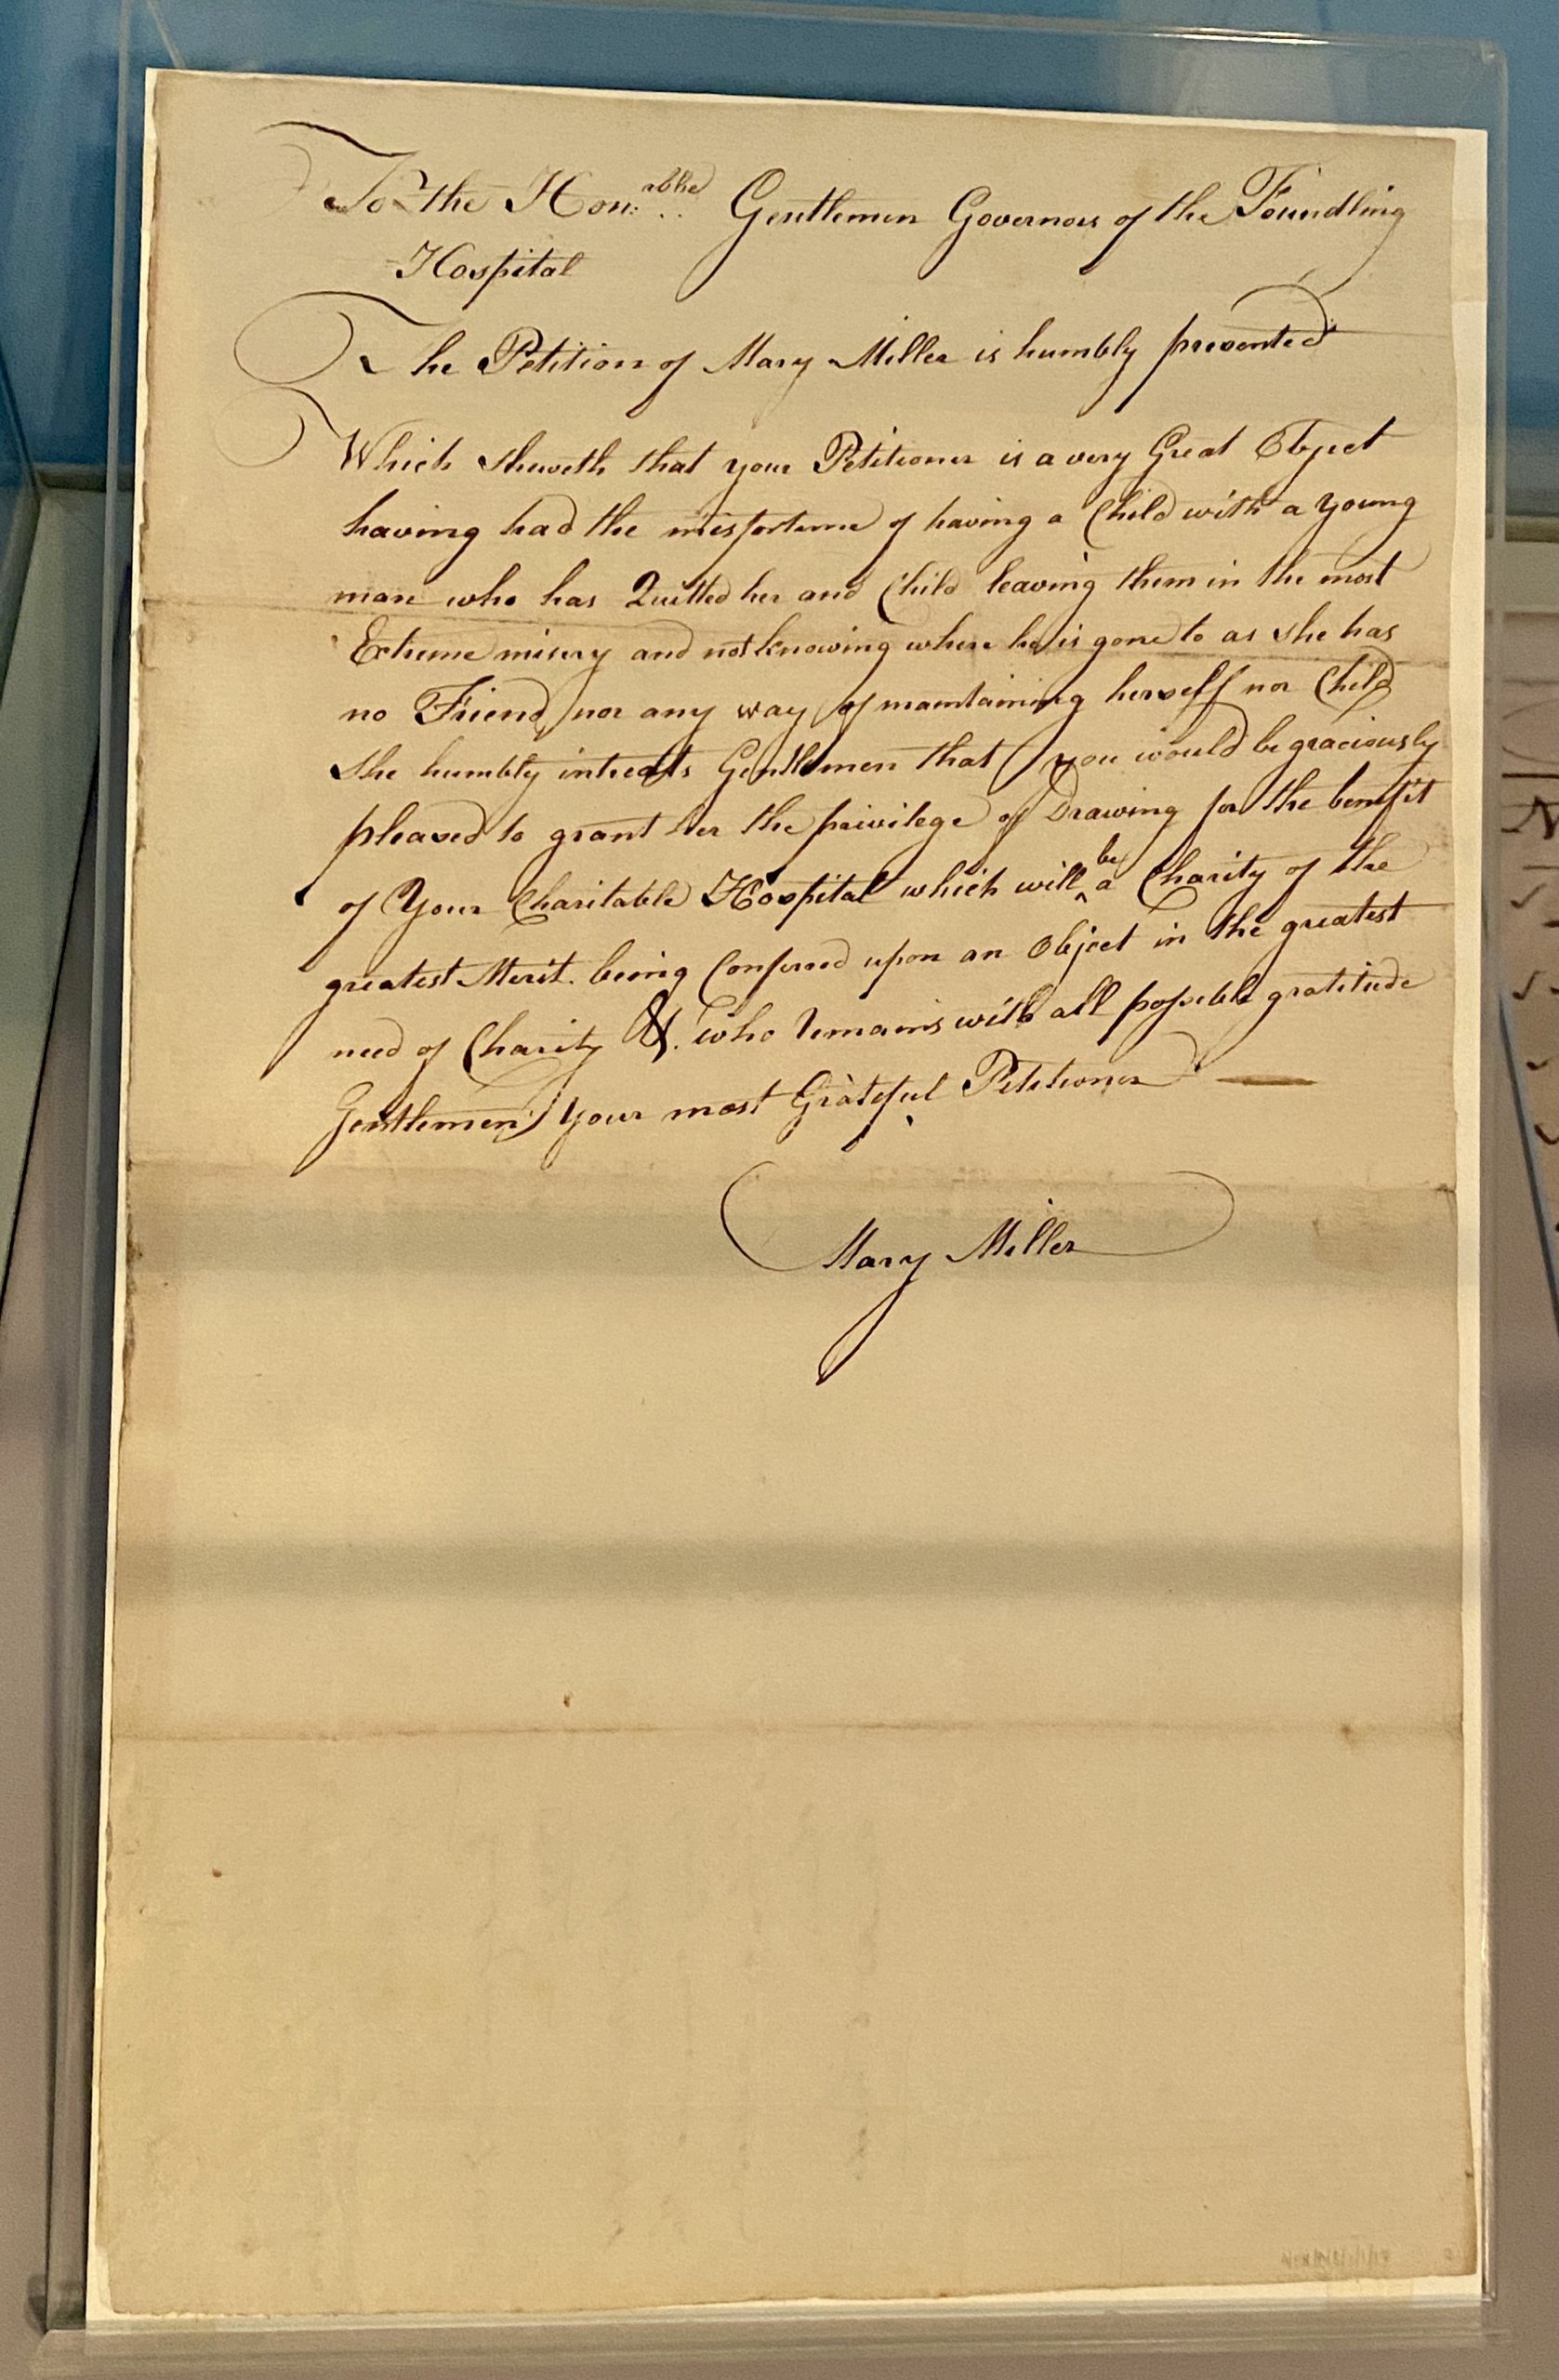 To the Hon:rable Gentlemen Governors of the Foundling
Hospital
The Petition of Mary Miller is humbly presented
Which sheweth that your Petitioner is a very Great Object
having had the misfortune of having a Child with a young
man who has Quitted her and Child leaving them in the most
Extreme misery and not knowing where he is gone to as she has
no Friend nor any way of maintaining herself nor Child
She humbly intreats Gentlemen that you would be graciously
pleased to grant her the privilege of Drawing for the benefit
of Your Charitable Hospital which will be a Charity of the
greatest Merit. being Conferred upon an Object in the greatest
need of Charity &. who remains with all possible gratitude
Gentlemen Your most Grateful Petitioner —
Mary Miller